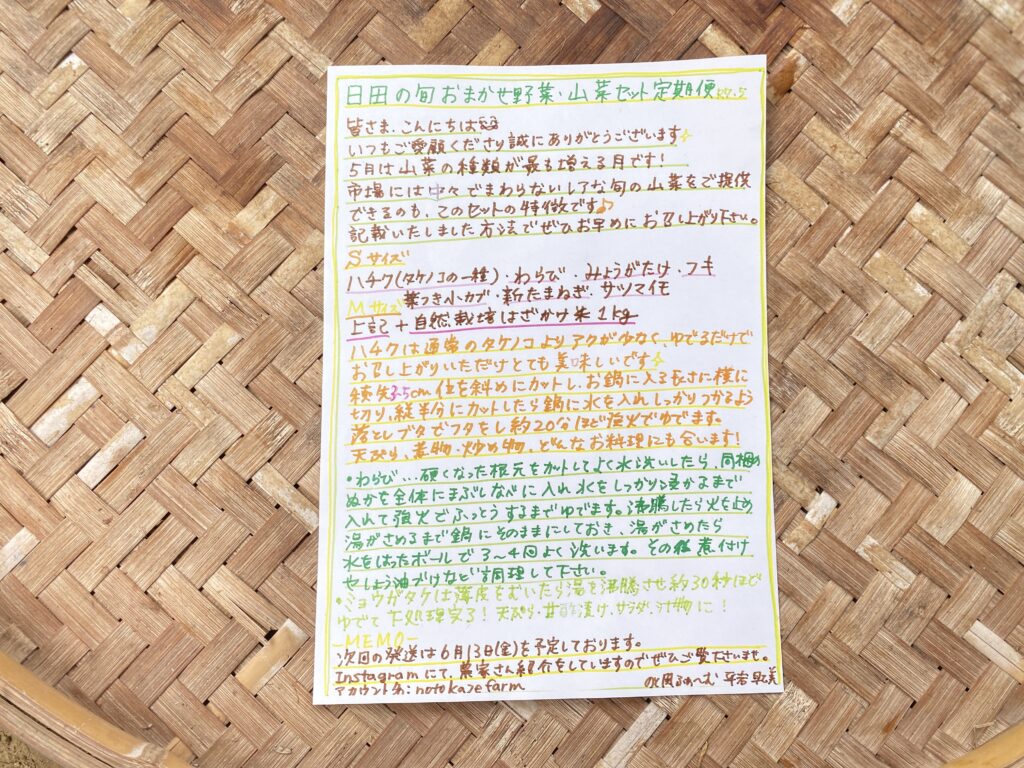 日田の旬おまかせ野菜・山菜セット定期便
皆さま、こんにちは
いつもご愛顧くださり誠にありがとうございます
5月は山菜の種類が最も増える月です!
市場には中々でまわらないレアな旬の山菜をご提供
できるのも、このセットの特徴です♪
記載いたしました方法でぜひお早めにお召し上がり下さい。
Sサイズ
ハチク(タケノコの一種)・わらび・みょうがたけ・フキ
葉つき小カブ・新たまねぎ・サツマイモ
Mサイズ
上記+自然栽培はざかけ米1kg
ハチクは通常のタケノコよりアクが少なく、ゆでるだけで
お召し上がりいただけとても美味しいです
穂先3-5cm位を斜めにカットし、お鍋に入る長さに横に
切り、縦半分にカットしたら鍋に水を入れしっかりつかるよう
落としブタでフタをし約20分ほど強火でゆでます。
天ぷら、煮物・炒め物、どんなお料理にも合います!
・わらび…硬くなった根元をカットしてよく水洗いしたら、同梱の
ぬかを全体にまぶしなべに入れ水をしっかり浸かるまで
入れて強火でふっとうするまでゆでます。沸騰したら火を止め
湯がさめるまで鍋にそのままにしておき、湯がさめたら
水をはったボールで3〜4回よく洗います。その後煮付け
やしょう油づけなど調理して下さい。
・ミョウガタケは薄皮をむいたら湯を沸騰させ約30秒ほど
ゆでて下処理完了!天ぷら・甘酢漬け、サラダ、汁物に!
MEMO-
次回の発送は6月13日(金)を予定しております。
Instagramにて、農家さん紹介をしていますのでぜひご覧下さいませ。
アカウント名:notokazefarm